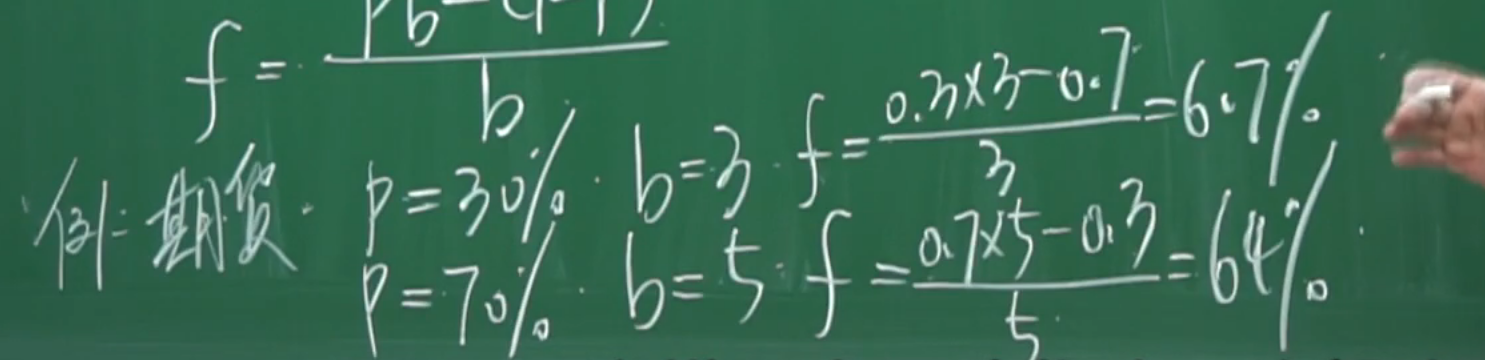 f = (pb-(1-p))/b
例: 期货. p=30%. b=3. f = (0.3×3-0.7)/3 = 6.7%
p=70%. b=5. f = (0.7×5-0.3)/5 = 64%